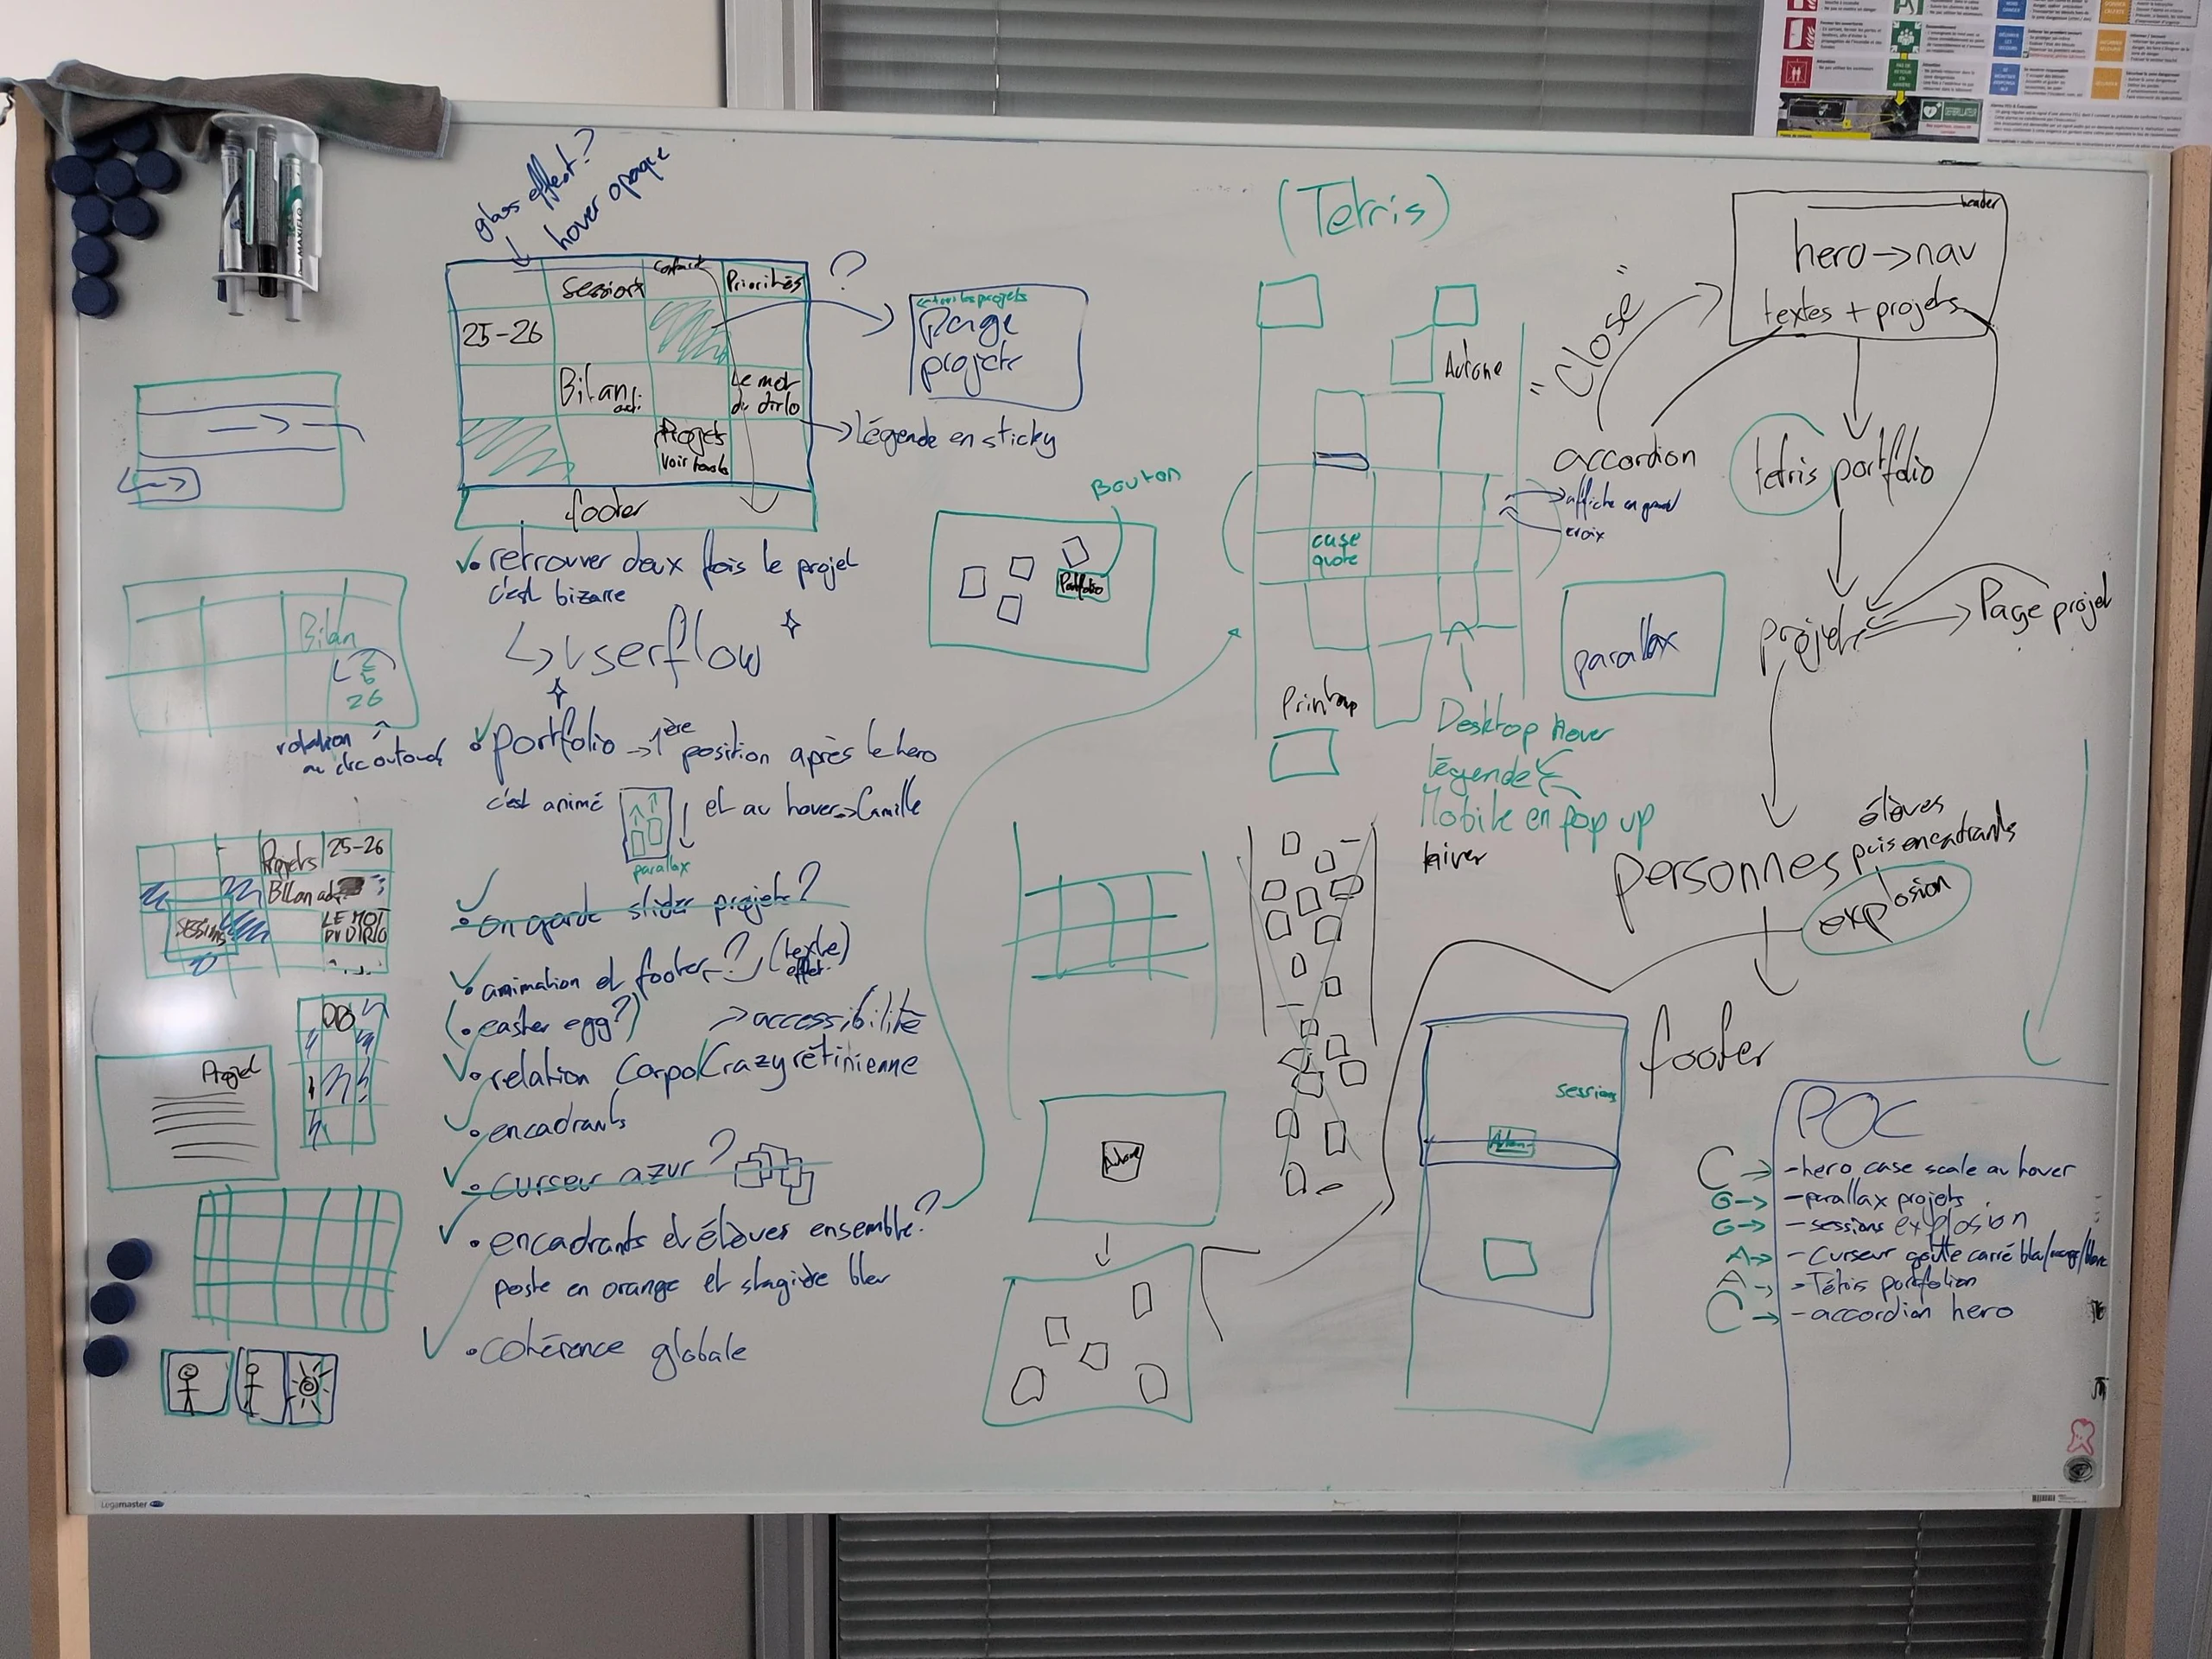 glass effect?
hover opaque
Sessions
contact
Priorités
25-26
Bilan
acti.
Le mot
du dirlo
Projets
voir tous
footer
?
← tous les projets
Page
projets
Légende en sticky
Bouton
Portfolio
• retrouver deux fois le projet
c'est bizarre
userflow
• portfolio → 1ère position après le hero
c'est animé
parallax
et au hover → Camille
• on garde slider projets?
• animation et footer ? (texte)
effet
(• easter egg?)
→ accessibilité
• relation Corpo/Crazy rétinienne
• encadrants
• curseur azur ?
• encadrants et élèves ensemble?
poste en orange et stagière bleu
• cohérence globale
Bilan
26
rotation
au clic
Projets
25-26
Bilan
sessions
LE MOT
DU DIRLO
Projet
(Tetris)
Automne
case
quote
affiche en grand
croix
parallax
Printemp
Desktop hover
légende
Mobile en pop up
hiver
header
hero → nav
textes + projets
"Close"
accordion
tetris portfolio
projets
Page projet
personnes
élèves
puis encadrants
explosion
footer
sessions
POC
C → - hero case scale au hover
G → - parallax projets
G → - sessions explosion
A → - Curseur goutte carré
A → - Tétris portfolion
C → - accordion hero
Legamaster